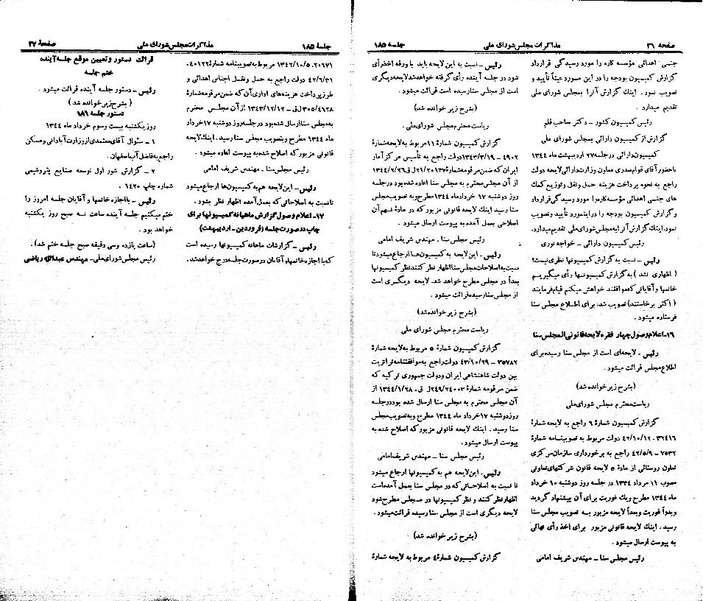 صفحه ۲۶ مذاکرات مجلس شورای ملی جلسه ۱۸۵
جنسی اهدائی مؤسسه کاره را مورد رسیدگی قرارداد
گزارش کمیسیون بودجه را در این مورد عیناً تأیید و
تصویب نمود. اینک گزارش آنرا بمجلس شورای ملی
تقدیم میدارد.
رئیس کمیسیون کشور - دکتر صاحب قلم
گزارش از کمیسیون دارائی بمجلس شورای ملی
کمیسیون دارائی در جلسه ۲۷ اردیبهشت ماه ۱۳۴۴
باحضور آقای قوام صدری معاون وزارت دارائی لایحه دولت
راجع به نحوه پرداخت هزینه حمل و نقل و توزیع کمک
های جنسی اهدائی مؤسسه کاره را مورد رسیدگی قرارداد
و گزارش کمیسیون بودجه را در اینمورد تأیید و تصویب
نمود. اینک گزارش آنرا بمجلس شورای ملی تقدیم میدارد.
رئیس کمیسیون دارائی - خواجه نوری
رئیس - نسبت به گزارش کمیسیون نظری نیست؟
(اظهاری نشد) به گزارش کمیسیونها رأی میگیریم
خانمها و آقایانی که موافقند خواهش میکنم قیام فرمایند
(اکثر برخاستند) تصویب شد. برای اطلاع مجلس سنا
فرستاده میشود.
۱۶- اعلام وصول چهار فقره لایحه قانونی از مجلس سنا
رئیس - لایحه‌ای است از مجلس سنا رسیده برای
اطلاع مجلس قرائت میشود.
(بشرح زیر خوانده شد)
ریاست محترم مجلس شورای ملی
گزارش کمیسیون شمارهٔ ۶ راجع به لایحه شمارهٔ
۳۲۴۱۶ - ۴۲/۱۰/۱۲ دولت مربوط به تصویبنامه شمارهٔ
۷۵۳۲ - ۴۲/۵/۹ راجع به برخورداری سازمان مرکزی
تعاون روستائی از مادهٔ ۵ لایحه قانون شرکتهای تعاونی
مصوب ۱۱ مرداد ۱۳۳۴ در جلسه روز دوشنبه ۱۰ خرداد
ماه ۱۳۴۴ مطرح و یک فوریت برای آن پیشنهاد گردید
و بدواً فوریت و بعداً لایحه مزبور به تصویب مجلس سنا
رسید. اینک لایحه قانونی مزبور برای اخذ رأی نهائی
به پیوست ارسال میشود.
رئیس مجلس سنا - مهندس شریف امامی
رئیس - نسبت به این لایحه باید با ورقه اخذ رأی
شود در جلسه آینده رأی گرفته خواهد شد لایحه دیگری
از مجلس سنا رسیده است قرائت میشود.
(بشرح زیر خوانده شد)
ریاست محترم مجلس شورای ملی.
گزارش کمیسیون شمارهٔ ۱۱ مربوط به لایحه شمارهٔ
۱۹۰۲ - ۱۳۴۳/۳/۱۹ دولت راجع به تأسیس مرکز آمار
ایران که ضمن مرقومه شمارهٔ
از آن مجلس محترم به مجلس سنا اعاده شده بود در جلسه
روز دوشنبه ۱۷ خرداد ماه ۱۳۴۴ مطرح و به تصویب مجلس
سنا رسید اینک لایحه قانونی مزبور که در مادهٔ نهم آن
اصلاحی بعمل آمده به پیوست ارسال میشود.
رئیس مجلس سنا - مهندس شریف امامی.
رئیس - این لایحه به کمیسیونها ارجاع میشود تا
نسبت به اصلاحات مجلس سنا اظهار نظر کنند نظر کمیسیونها
بعداً در مجلس مطرح خواهد شد. لایحه دیگری است
از مجلس سنا رسیده قرائت میشود.
(بشرح زیر خوانده شد)
ریاست محترم مجلس شورای ملی
گزارش کمیسیون شمارهٔ ۵ مربوط به لایحه شمارهٔ
۳۵۷۸۲ - ۴۳/۱۰/۲۹ دولت راجع به موافقتنامه ترانزیت
بین دولت شاهنشاهی ایران و دولت جمهوری ترکیه که
ضمن مرقومه شمارهٔ ۲۴۰۰۳/۲۴۹ ل ق - ۱۳۴۴/۱/۲۸ از
آن مجلس محترم به مجلس سنا ارسال شده بود در جلسه
روز دوشنبه ۱۷ خرداد ماه ۱۳۴۴ مطرح و به تصویب مجلس
سنا رسید. اینک لایحه قانونی مزبور که اصلاح شده به
پیوست ارسال میشود.
رئیس مجلس سنا - مهندس شریف امامی
رئیس - این لایحه هم به کمیسیونها ارجاع میشود
تا نسبت به اصلاحاتی که در مجلس سنا بعمل آمده است
اظهار نظر کنند و نظر کمیسیونها در مجلس مطرح شود
لایحه دیگری است از مجلس سنا رسیده قرائت میشود.
(بشرح زیر خوانده شد)
گزارش کمیسیون شمارهٔ ۴ مربوط به لایحه شمارهٔ
جلسهٔ ۱۸۵ مذاکرات مجلس شورای ملی صفحهٔ ۲۷
۲۰۹۷۱ - ۱۳۴۲/۱۰/۵ مربوط به تصویبنامه شماره ۴۰۱۲۲
۴۲/۶/۳۱ دولت راجع به حمل و نقل اجناس اهدائی و
طرز پرداخت هزینه‌های اداری آن که ضمن مرقومه شمارهٔ
ق - ۱۳۴۳/۱۲/۱۲ از آن مجلس محترم
به مجلس سنا ارسال شده بود در جلسه روز دوشنبه ۱۷ خرداد
ماه ۱۳۴۴ مطرح و بتصویب مجلس سنا رسید. اینک لایحه
قانونی مزبور که اصلاح شده به پیوست اعاده میشود.
رئیس مجلس سنا - مهندس شریف امامی
رئیس - این لایحه هم به کمیسیونها ارجاع میشود
تا نسبت به اصلاحاتی که بعمل آمده اظهار نظر بشود.
۱۷- اعلام وصول گزارش ماهیانه کمیسیونها برای
چاپ در صورت جلسه (فروردین - اردیبهشت)
رئیس - گزارشات ماهانه کمیسیونها رسیده است
که با اجازه خانمها و آقایان در صورت جلسه درج خواهد شد.
قرائت دستور و تعیین موقع جلسه آینده
ختم جلسه
رئیس - دستور جلسه آینده قرائت میشود.
(بشرح زیر خوانده شد)
دستور جلسه ۱۸۶
روز یکشنبه بیست و سوم خرداد ماه ۱۳۴۴
۱ - سئوال آقای معتمدی از وزارت آبادانی و مسکن
راجع به فاضل آب اصفهان.
۲ - گزارش شور اول توسعه صنایع پتروشیمی
شماره چاپ ۱۴۲۰
رئیس - با اجازه خانمها و آقایان جلسه امروز را
ختم میکنیم جلسه آینده ساعت نه صبح روز یکشنبه
خواهد بود.
(ساعت یازده و سی دقیقه صبح جلسه ختم شد).
رئیس مجلس شورای ملی - مهندس عبدالله ریاضی